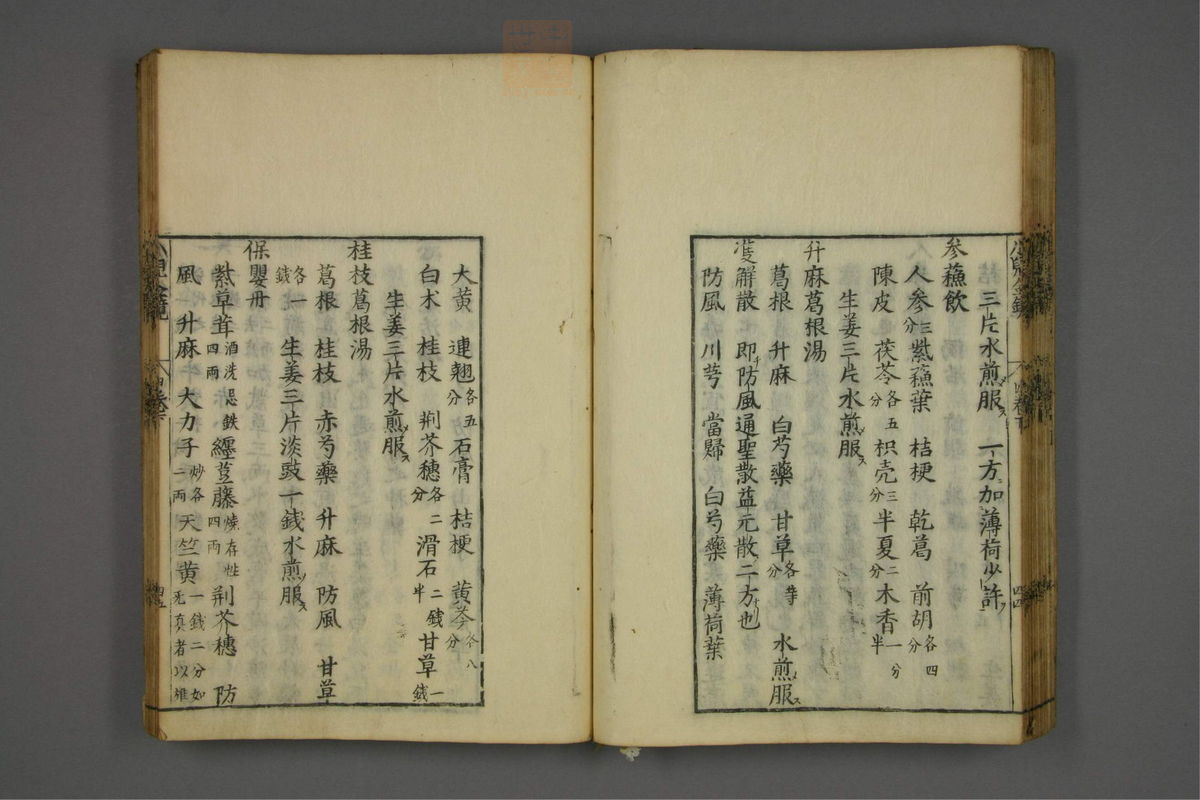 三片水煎服ス 一方加薄荷少許
参蘓飲
人参三分 紫蘓葉 桔梗 乾葛 前胡各四分
陳皮 茯苓各五分 枳壳三分 半夏二分 木香一分半
生姜三片水煎服ス
升麻葛根湯
葛根 升麻 白芍藥 甘草各等分 水煎服ス
雙解散 即防風通聖散益元散二方也
防風 川芎 當歸 白芍藥 薄荷葉
大黄 連翹各五分 石膏 桔梗 黄芩各八分
白朮 桂枝 荆芥穗各二分 滑石二錢半 甘草一錢
生姜三片水煎服ス
桂枝葛根湯
葛根 桂枝 赤芍藥 升麻 防風 甘草
各一錢 生姜三片淡豉一錢水煎服ス
保嬰丹
紫草茸酒洗忌鉄四両 纏荳藤燒存性四両 荆芥穗 防
風 升麻 大力子炒各二両 天竺黄一錢二分如无真者以雄